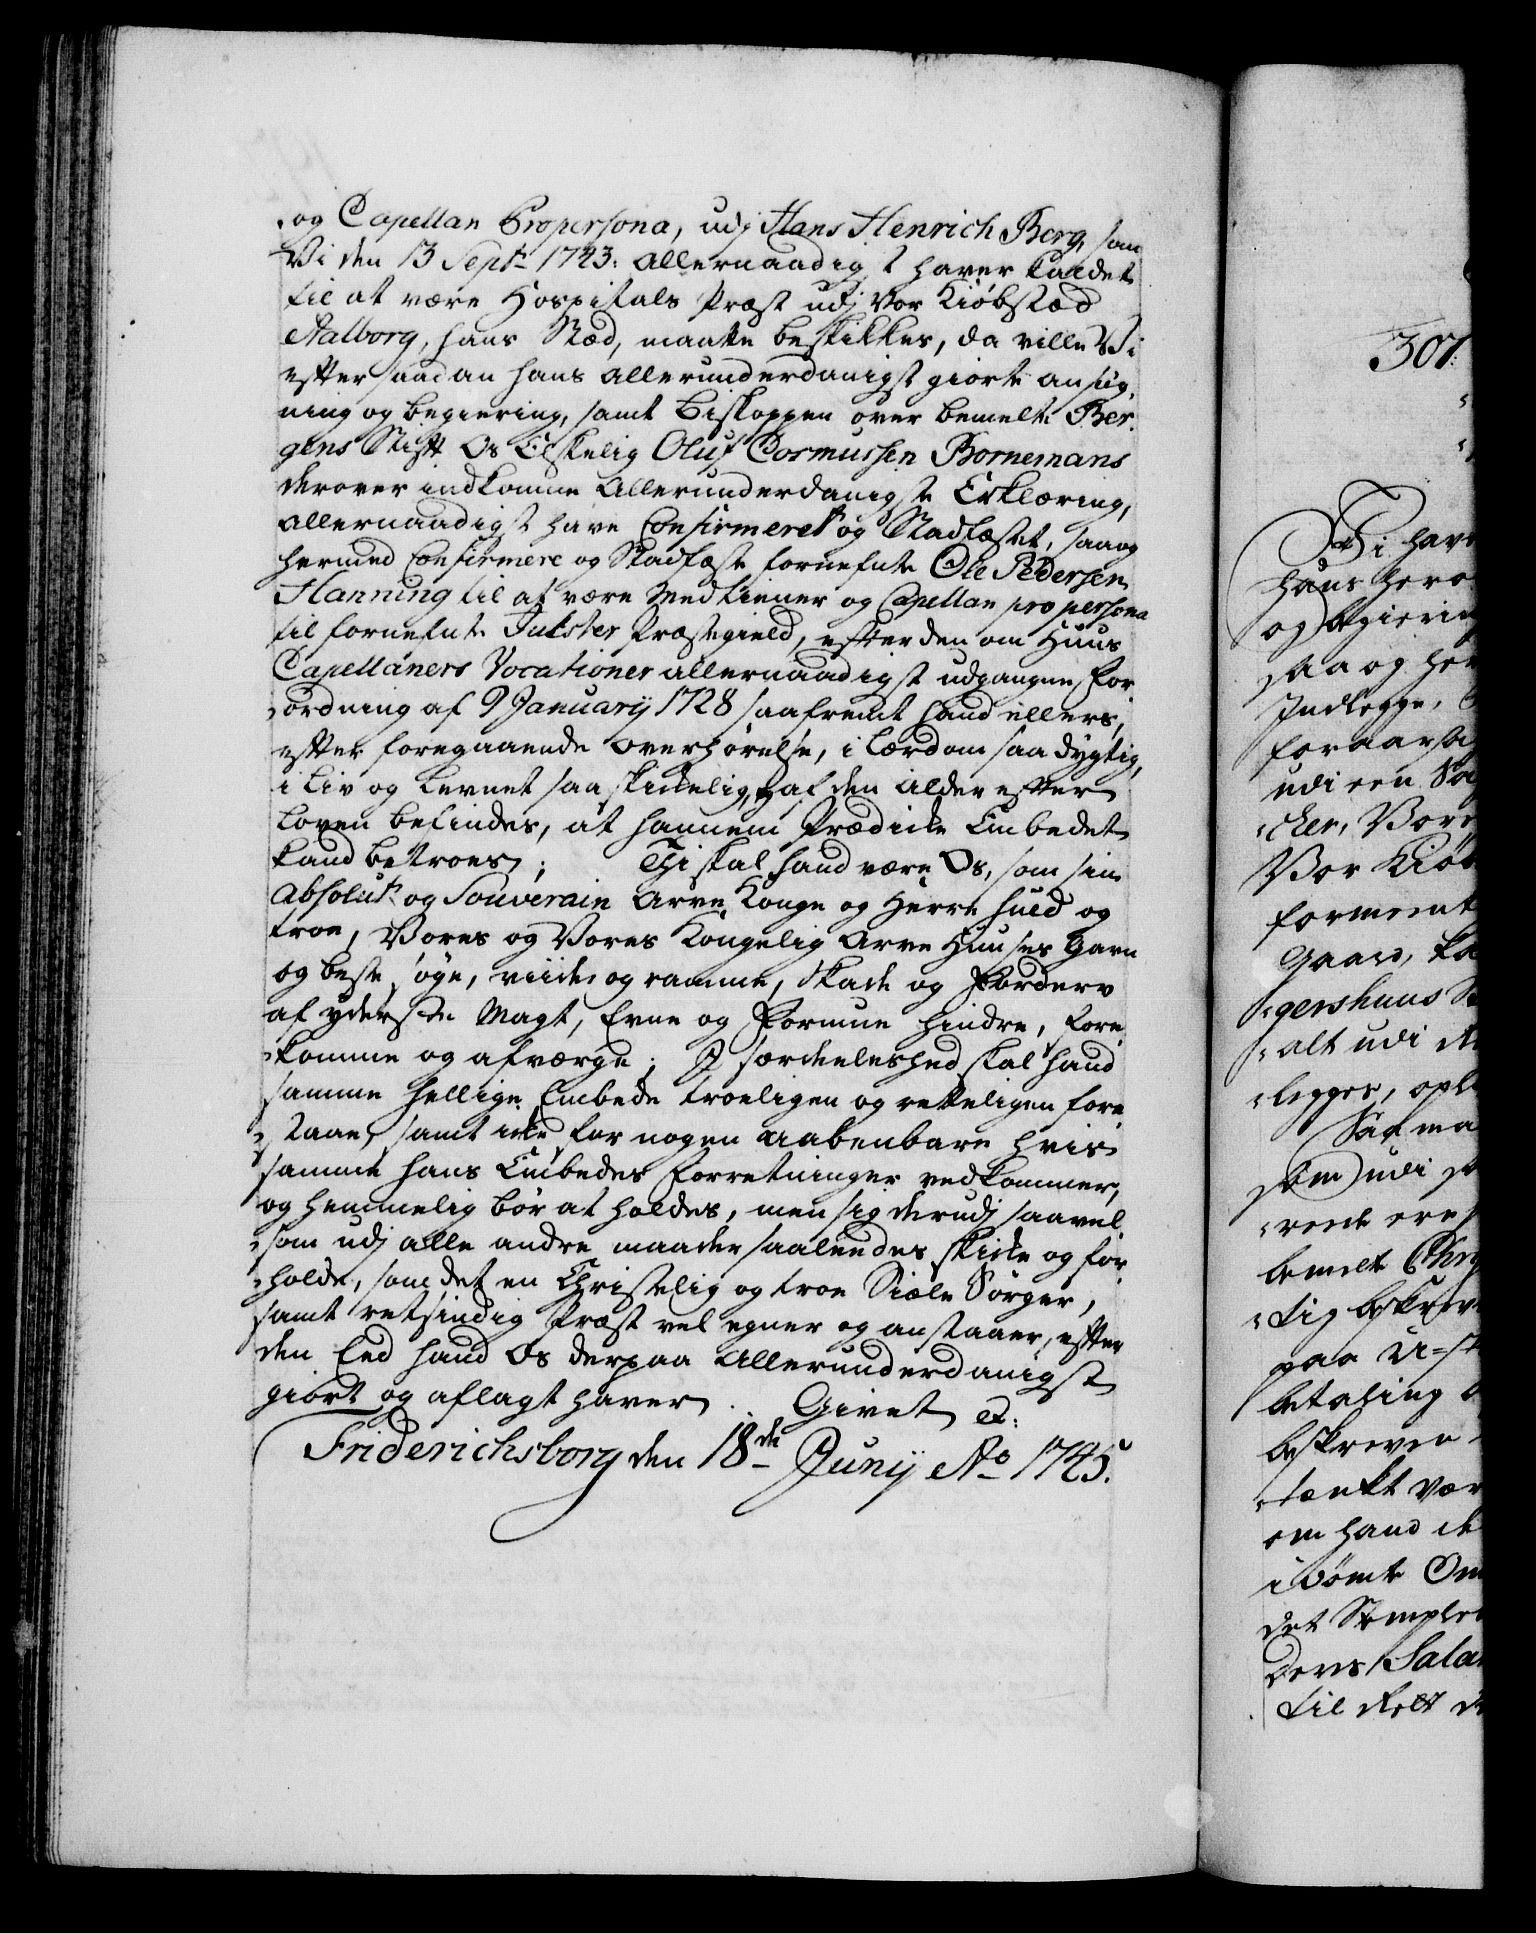 og Capellan Propersona, udj Hans Henrich Borg, som
Vi den 13 Septr 1743: allernaadigst haver kaldet
til at være Hospitals Præst udj Vor Kiøbstæd
Aalborg, hans Stæd, maatte beskikkes, da ville Vi
efter saadan hans allerunderdanigst giorte ansøg,
ning og begiering, samt Biskoppen over bemelte Ber,
gens Stift Os Elskelig Oluf Cosmussen Bornemans
derover indkomne Allerunderdanigste Erklæring,
allernaadigst have Confirmeret og Stadfæstet, saa og
hermed Confirmere og Stadfæste fornefnte Ole Pedersen
Hanning til at være Medtiener og Capellan pro persona
til fornefnte Jukster Præstegield, efter den om Huus
Capellaners Vocationer allernaadigst udgangne For
ordning af 9 January 1728 saafremt hand ellers,
efter foregaaende Overhørelse, i Lærdom saa dygtig,
i Liv og Levnet saa skikkelig, og af den Alder efter
Loven befindes, at hannem Prædicke Embedet
kand betroes; Thi skal hand være Os, som sin
absolut og Souverain Arve Konge og Herre huld og
troe, Vores og Vores Kongelig Arve Huuses Gavn
og beste søge, viide og ramme, Skade og Forderv
af yderste Magt, Evne og Formue hindre, fore
komme og afværge; I særdeeleshed skal hand
samme hellige Embede troeligen og retteligen fore
staae, samt icke for nogen aabenbare hvis
samme hans Embedes Forretninger vedkommer,
og hemmelig bør at holdes, men sig derudj saavel
som udj alle andre maader saaledes skicke og for
holde, som det en Christelig og troe Siæle Sørger,
samt retsindig Præst vel egner og anstaaer, efter
den Eed hand Os derpaa Allerunderdanigst
giort og aflagt haver. Givet &:
Friderichsborg den 18de Junij Ao 1745.
307.
Vi hav
hans hero
og begierin
saa og her
Indlegge,
foraarsa
udi een Sa
cker, Vore
Vor Kiøb
formeente
Gaard, ka
gershuus S
alt udi
legges, opl
Saa ma
som udi
bemelte Chr
tig beskrev
paa
betaling
beskreven
tænkt vær
om hand
idømte Om
det Stemple
ders Sala
til